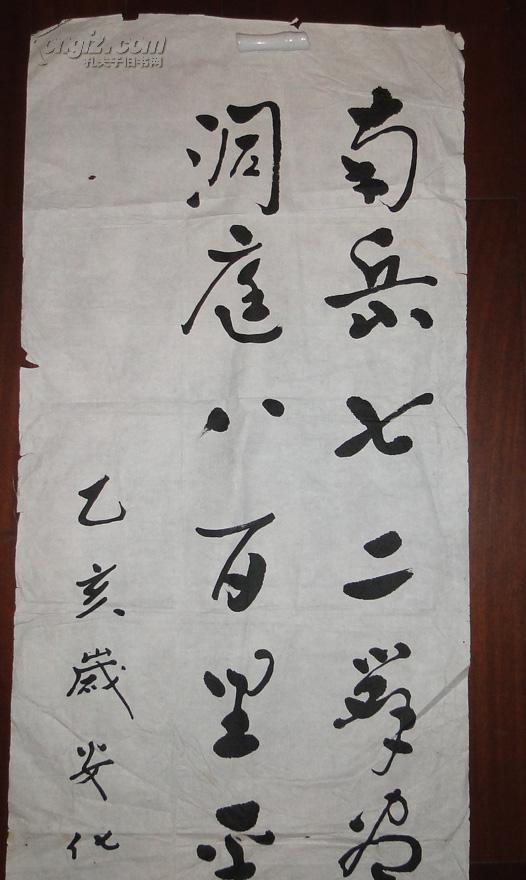 南岳七二峯
洞庭八百里
乙亥歲安化
孔夫子旧书网